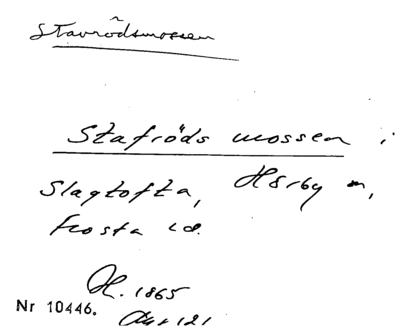 Stavrödsmossen
Stafröds mossen i
Slagtofta, Hörby sn,
Frosta hd.
H. 1865
Nr 10446.
121